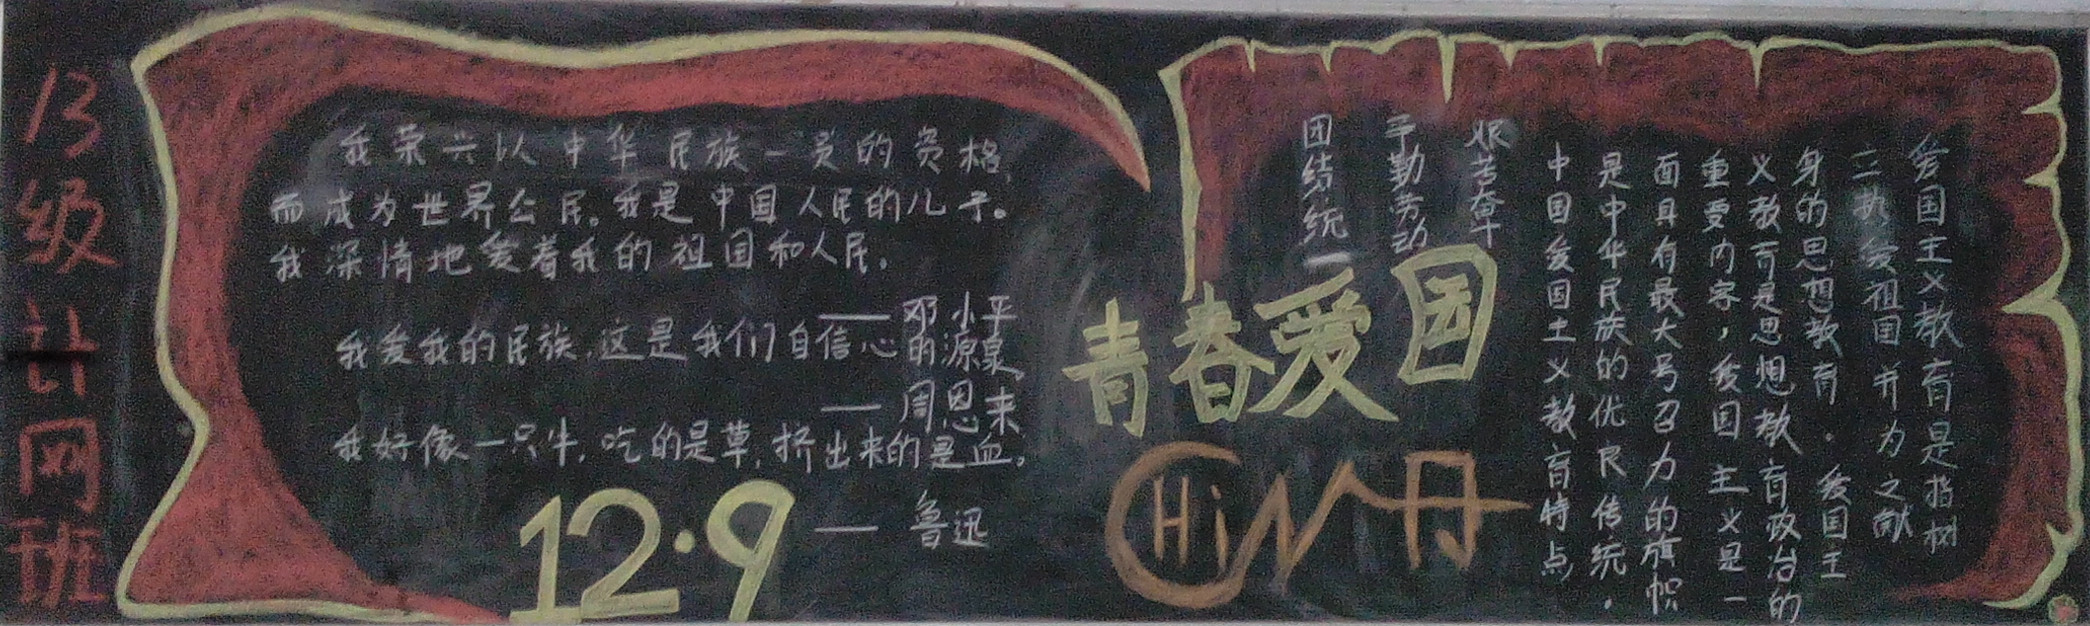 13级计网班
我荣兴以中华民族一员的资格,
而成为世界公民。我是中国人民的儿子。
我深情地爱着我的祖国和人民。
——邓小平
我爱我的民族,这是我们自信心的源泉
——周恩来
我好像一只牛,吃的是草,挤出来的是血。
——鲁迅
12·9
青春爱国
CHiN丹
爱国主义教育是指树
立热爱祖国并为之献
身的思想教育。爱国主
义教育是思想教育政治的
重要内容,爱国主义是一
面具有最大号召力的旗帜
是中华民族的优良传统。
中国爱国主义教育特点
艰苦奋斗
辛勤劳动
团结统一